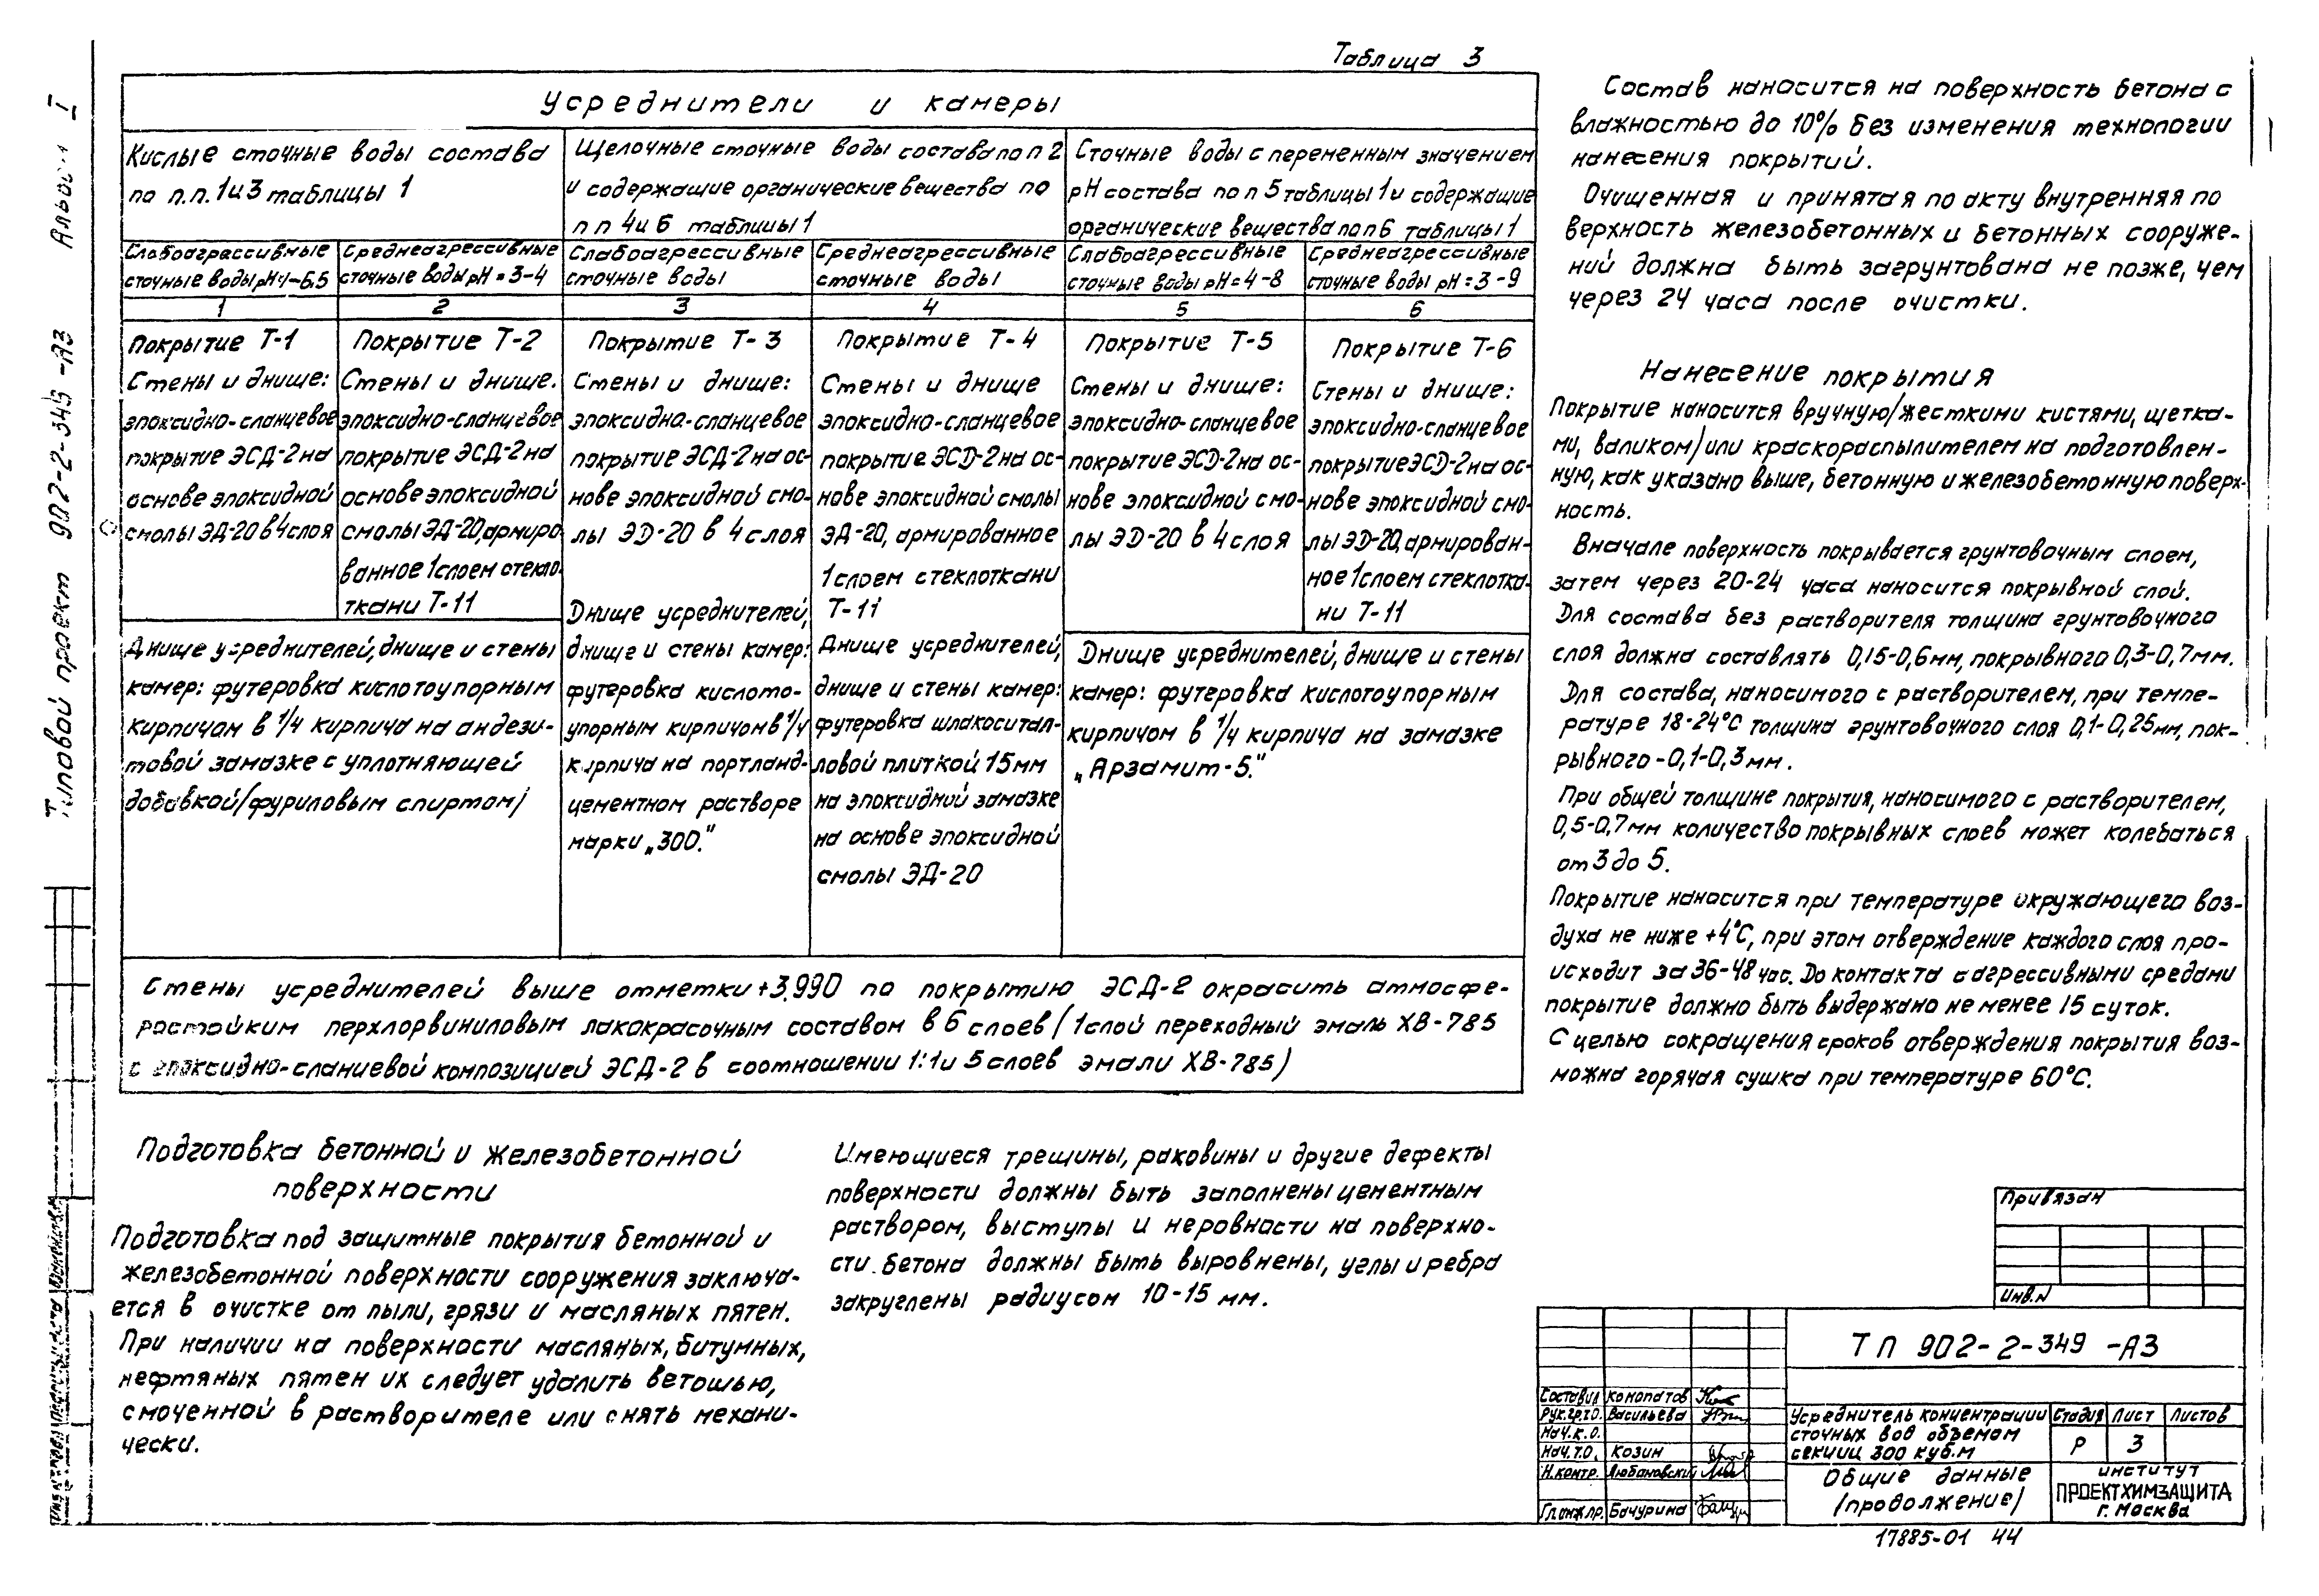 Таблица 3
Усреднители и камеры
Кислые сточные воды состава
по п.п. 1и3 таблицы 1
Щелочные сточные воды состава по п 2
и содержащие органические вещества по
п п 4и 6 таблицы 1
Сточные воды с переменным значением
pH состава по п 5 таблицы 1 и содержащие
органические вещества по п 6 таблицы 1
Слабоагрессивные
сточные воды pH
Среднеагрессивные
сточные воды pH = 3-4
Слабоагрессивные
сточные воды
Среднеагрессивные
сточные воды
Слабоагрессивные
сточные воды pH = 4-8
Среднеагрессивные
сточные воды pH = 3-9
1 2 3 4 5 6
Покрытие Т-1
Стены и днище:
эпоксидно-сланцевое
покрытие ЭСД-2 на
основе эпоксидной
смолы ЭД-20 в 4 слоя
Покрытие Т-2
Стены и днище.
эпоксидно-сланцевое
покрытие ЭСД-2 на
основе эпоксидной
смолы ЭД-20, армиро
ванное 1 слоем стекло-
ткани Т-11
Днище усреднителей, днище и стены
камер: футеровка кислотоупорным
кирпичом в 1/4 кирпича на андези-
товой замазке с уплотняющей
добавкой /фуриловым спиртом/
Покрытие Т-3
Стены и днище:
эпоксидно-сланцевое
покрытие ЭСД-2 на ос-
нове эпоксидной смо-
лы ЭD-20 в 4 слоя
Днище усреднителей,
днище и стены камер:
футеровка кислото-
упорным кирпичом в 1/4
кирпича на портланд-
цементном растворе
марки „300."
Покрытие Т-4
Стены и днище
эпоксидно-сланцевое
покрытие ЭСD-2 на ос-
нове эпоксидной смолы
ЭД-20, армированное
1 слоем стеклоткани
Т-11
Днище усреднителей,
днище и стены камер:
футеровка шлакоситал-
ловой плиткой 15 мм
на эпоксидной замазке
на основе эпоксидной
смолы ЭД-20
Покрытие Т-5
Стены и днище:
эпоксидно-сланцевое
покрытие ЭСD-2 на ос-
нове эпоксидной смо-
лы ЭD-20 в 4 слоя
Покрытие Т-6
Стены и днище:
эпоксидно-сланцевое
покрытие ЭСD-2 на ос-
нове эпоксидной смо-
лы ЭD-20, армирован-
ное 1 слоем стеклотка-
ни Т-11
Днище усреднителей, днище и стены
камер: футеровка кислотоупорным
кирпичом в 1/4 кирпича на замазке
„Арзамит-5."
Стены усреднителей выше отметки +3.990 по покрытию ЭСД-2 окрасить атмосфе-
ростойким перхлорвиниловым лакокрасочным составом в 6 слоев (1 слой переходный эмаль ХВ-785
с эпоксидно-сланцевой композицией ЭСД-2 в соотношении 1:1 и 5 слоев эмали ХВ-785)
Подготовка бетонной и железобетонной
поверхности
Подготовка под защитные покрытия бетонной и
железобетонной поверхности сооружения заключа-
ется в очистке от пыли, грязи и масляных пятен.
При наличии на поверхности масляных, битумных,
нефтяных пятен их следует удалить ветошью,
смоченной в растворителе или снять механи-
чески.
Имеющиеся трещины, раковины и другие дефекты
поверхности должны быть заполнены цементным
раствором, выступы и неровности на поверхно-
сти бетона должны быть выровнены, углы и ребра
закруглены радиусом 10-15 мм.
Состав наносится на поверхность бетона с
влажностью до 10% без изменения технологии
нанесения покрытий.
Очищенная и принятая по акту внутренняя по
верхность железобетонных и бетонных сооруже-
ний должна быть загрунтована не позже, чем
через 24 часа после очистки.
Нанесение покрытия
Покрытие наносится вручную /жесткими кистями, щетка-
ми, валиком/ или краскораспылителем на подготовлен-
ную, как указано выше, бетонную и железобетонную поверх-
ность.
Вначале поверхность покрывается грунтовочным слоем,
затем через 20-24 часа наносится покрывной слой.
Для состава без растворителя толщина грунтовочного
слоя должна составлять 0,15-0,6мм, покрывного 0,3-0,7мм.
Для состава, наносимого с растворителем, при темпе-
ратуре 18-24°С толщина грунтовочного слоя 0,1-0,25мм, пок-
рывного-0,1-0,3мм.
При общей толщине покрытия, наносимого с растворителем,
0,5-0,7мм количество покрывных слоев может колебаться
от 3 до 5.
Покрытие наносится при температуре окружающего воз-
духа не ниже +4°С, при этом отверждение каждого слоя про-
исходит за 36-48 час. До контакта с агрессивными средами
покрытие должно быть выдержано не менее 15 суток.
С целью сокращения сроков отверждения покрытия воз-
можна горячая сушка при температуре 60°С.
Привязан
Инв.N
ТП 902-2-349 -АЗ
Составил Комопатов
Рук.гр.т.о. Васильева
Нач.к.о.
Нач.т.о. Козин
Н.контр. Любановский
Гл.инж.пр. Бачурина
Усреднитель концентрации
сточных вод объемом
секции 300 куб.м
Стадия Лист Листов
Р 3
Общие данные
/продолжение/
институт
ПРОЕКТХИМЗАЩИТА
г. Москва
17885-01 44
Типовой проект 902-2-349 -АЗ Альбом I